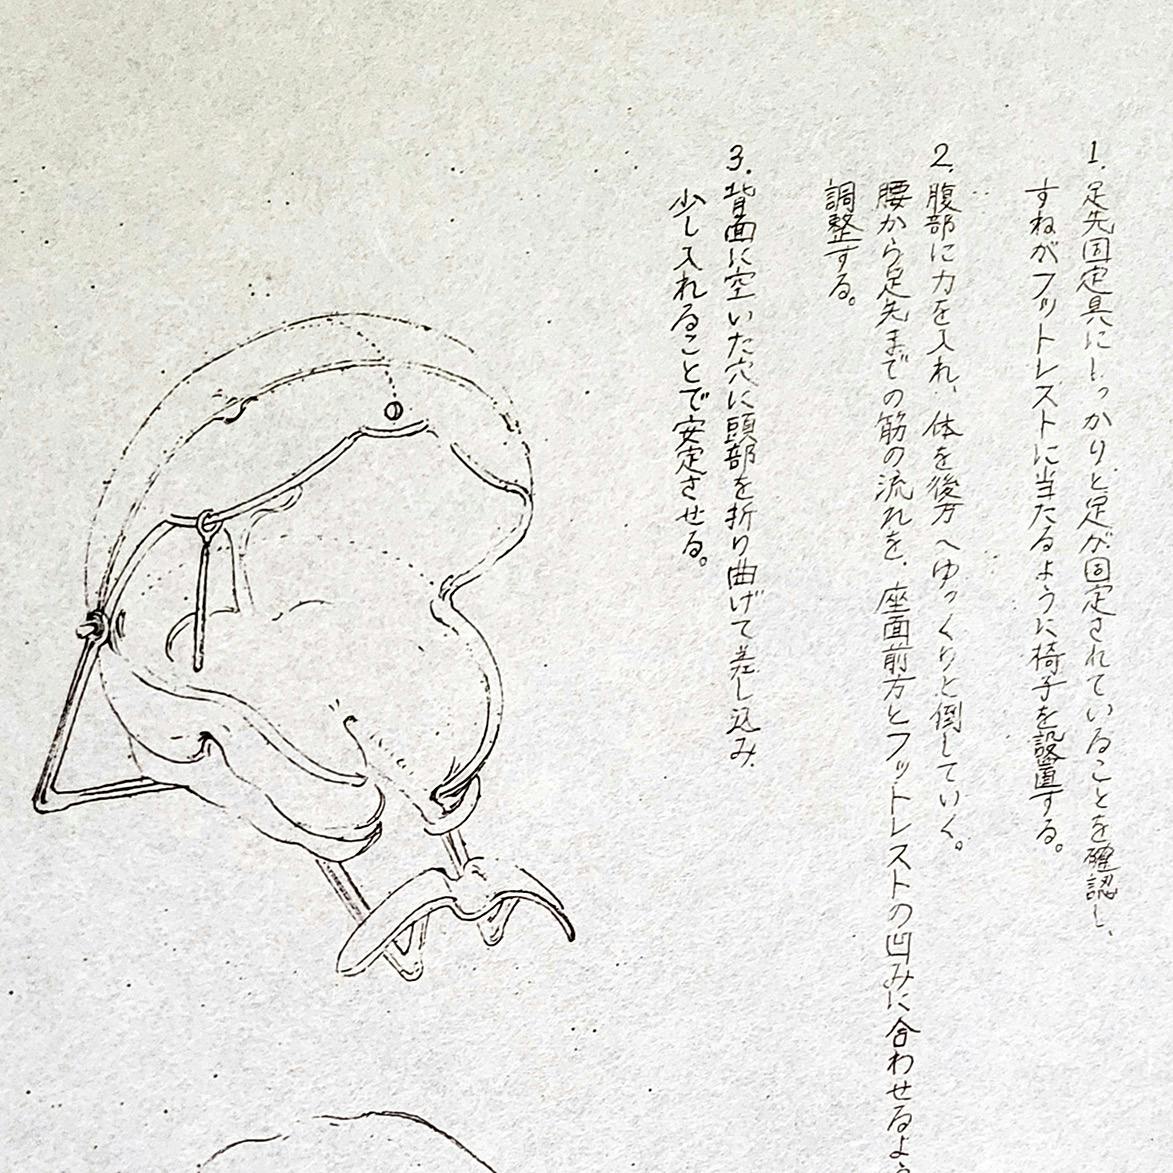 1. 足先固定具にしっかりと足が固定されていることを確認し、
すねがフットレストに当たるように椅子を設置する。
2. 腹部に力を入れ、体を後方へゆっくりと倒していく。
腰から足先までの筋の流れを、座面前方とフットレストの凹みに合わせるよう
調整する。
3. 背面に空いた穴に頭部を折り曲げて差し込み、
少し入れることで安定させる。